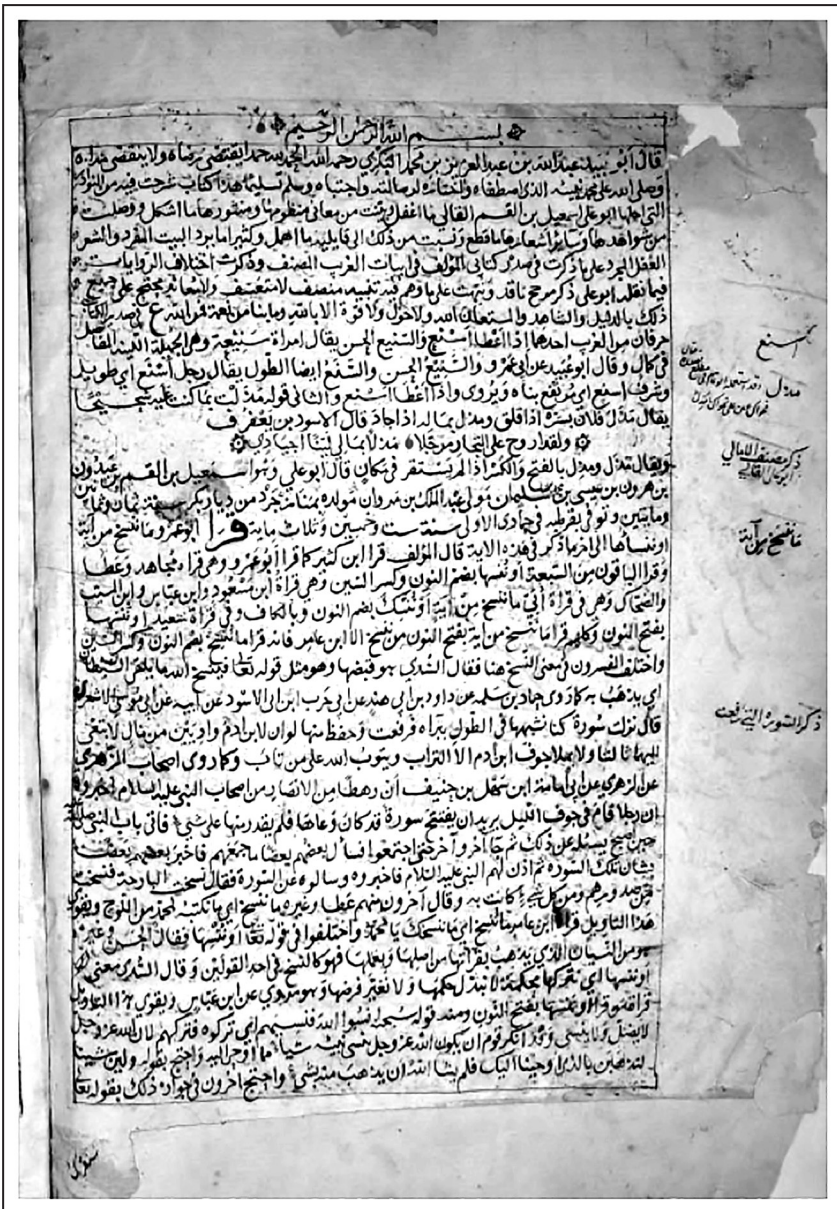 بسم الله الرحمن الرحيم
قال أبو عبيد عبد الله بن عبد العزيز بن محمد البكري رحمه الله الحمد لله حمدا يقتضى رضاه ولا ينقضى مداه
وصلى الله على محمد نبيه الذى اصطفاه واختاره لرسالته واجتباه وسلم تسليما هذا كتاب شرحت فيه من النوادر
التى املها ابو على اسمعيل بن القسم القالى ما اغفل وبينت من معانى منظومها ومنثورها ما اشكل ووصلت
من شواهدها وسائر اشعارها ما قطع ونسبت من ذلك الى قايليه ما اهمل وكثيرا ما يرد البيت المفرد والشعر
الغفل المجرد على ما ذكرت فى صدر كتابى المؤلف فى ابيات الغريب المصنف وذكرت اختلاف الروايات
فيما نقله ابو على ذكر مرجح ناقد ونبهت على ما وهم فيه تنبيه منصف لا متعسف ولا معاند محتج على جميع
ذلك بالدليل والشاهد والمستعان الله ولا حول ولا قوة الا بالله
حرفان من الغريب احدها اذا اعطا اسنع والسنيع الحسن يقال امراة سنيعة وهى الجميلة اللينة المفاصل
فى كمال وقال ابو عبيد عن ابى عمرو والسنيع الحسن والسنع ايضا الطول يقال رجل اسنع اى طويل
وشرف اسنع اى مرتفع بناه ويروى واذا اعطا اسنع والثانى قوله مذلت بما كنت
يقال مذل فلان بسره اذا قلق ومذل بماله اذا جاد قال الاسود بن يعفر
ولقد اروح على التجار مرجلا مذلا بمالى لينا اجيادى
ويقال مذل ومذل بالفتح والكسر اذا لم يستقر فى مكان قال ابو على وهو اسمعيل بن القسم بن عيذون
بن هرون بن عيسى بن سليمان مولى عبد الملك بن مروان مولده بمنازجرد من ديار بكر سنة ثمان وثمانين
ومايتين وتوفى بقرطبه فى جمادى الاولى سنة ست وخمسين وثلاث ماية قرا ابو عمرو ما ننسخ من آية
او ننساها الى اخر ما ذكر فى هذه الاية قال المؤلف قرا ابن كثير كما قرا ابو عمرو وهى قراة مجاهد وعطا
وقرا الباقون من السبعة او ننسها بضم النون وكسر السين وهى قراة ابن مسعود وابن عباس وابن المسيب
والضحاك وهى فى قراة أبى ما ننسخ من آية او ننسك بضم النون وبالكاف وفى قراة سعيد او تنسها
بفتح النون وكلهم قرا ما ننسخ من آية بفتح النون من نسخ الا ابن عامر فانه قرا ما ننسخ بضم النون وكسر السين
واختلف المفسرون فى معنى النسخ هنا فقال السدى هو قبضها وهو مثل قوله تعالى فينسخ الله ما يلقى الشيطان
اى يذهب به كما روى حماد بن سلمه عن داود بن ابى هند عن ابى حرب ابن ابى الاسود عن ابيه عن ابى موسى الاشعرى
قال نزلت سورة كنا نشبهها فى الطول ببراه فرفعت وحفظ منها لو ان لابن ادم واديين من مال لابتغى
اليهما ثالثا ولا يملا جوف ابن ادم الا التراب ويتوب الله على من تاب وكما روى اصحاب الزهرى
عن الزهرى عن ابى امامة ابن سهل بن حنيف ان رهطا من الانصار من اصحاب النبى عليه السلام اخبروه
ان رجلا قام فى جوف الليل يريد ان يفتتح سورة قد كان وعاها فلم يقدر منها على شىء فاتى باب النبى
حين اصبح يسئله عن ذلك ثم جا اخر وآخر حتى اجتمعوا فسأل بعضهم بعضا ما جمعهم فاخبر بعضهم بعضا
بشان تلك السورة ثم اذن لهم النبى عليه السلام فاخبروه وسالوه عن السورة فقال نسخت البارحة فنسخت
من صدورهم ومن كل شىء كانت به وقال آخرون منهم عطا وغيره ما ننسخ اى ما نكتبه لمحمد من اللوح ويقوى
هذا التاويل قراة ابن عامر ما ننسخ اى ما ننسخك يا محمد واختلفوا فى قوله تعالى او ننسها فقال الحسن وغيره
هو من النسيان الذى يذهب بقراتها من اصلها وبفعلها فهو كالنسخ فى احد القولين وقال السدى معنى
او ننسها اى نتركها محكمة لا نبدل حكمها ولا نغير فرضها وهو مروى عن ابن عباس ويقوى هذا التاويل
قراة من قرا او ننسها بفتح النون ومنه قوله سبحنه نسوا الله فنسيهم اى تركوه فتركهم لان الله عز وجل
لا يضل ولا ينسى وقد انكر قوم ان يكون الله عز وجل نسى نبيه شيا مما اوحى اليه واحتج بقوله ولئن شينا
لنذهبن بالذى اوحينا اليك فلم يشا الله ان يذهب منه بشىء واحتج آخرون فى جواز ذلك بقوله تعالى
اسنع
مذل
ذكر مصنف الامالى
ابو على القالى
ما ننسخ من آية
ذكر السورة التى رفعت